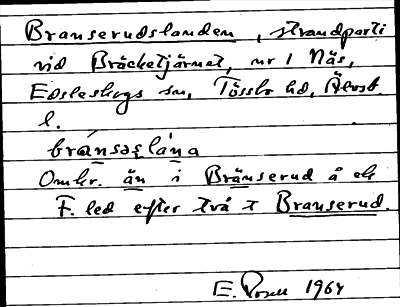 Branserudslanden, strandparti
vid Bräcketjärnet, nr 1 Näs,
Edsleskogs sn, Tössbo hd, Älvsb.
l.
bránsəslána
Omkr. än i Bränserud å ek
F. led efter två t Branserud.
E. Rosell 1964